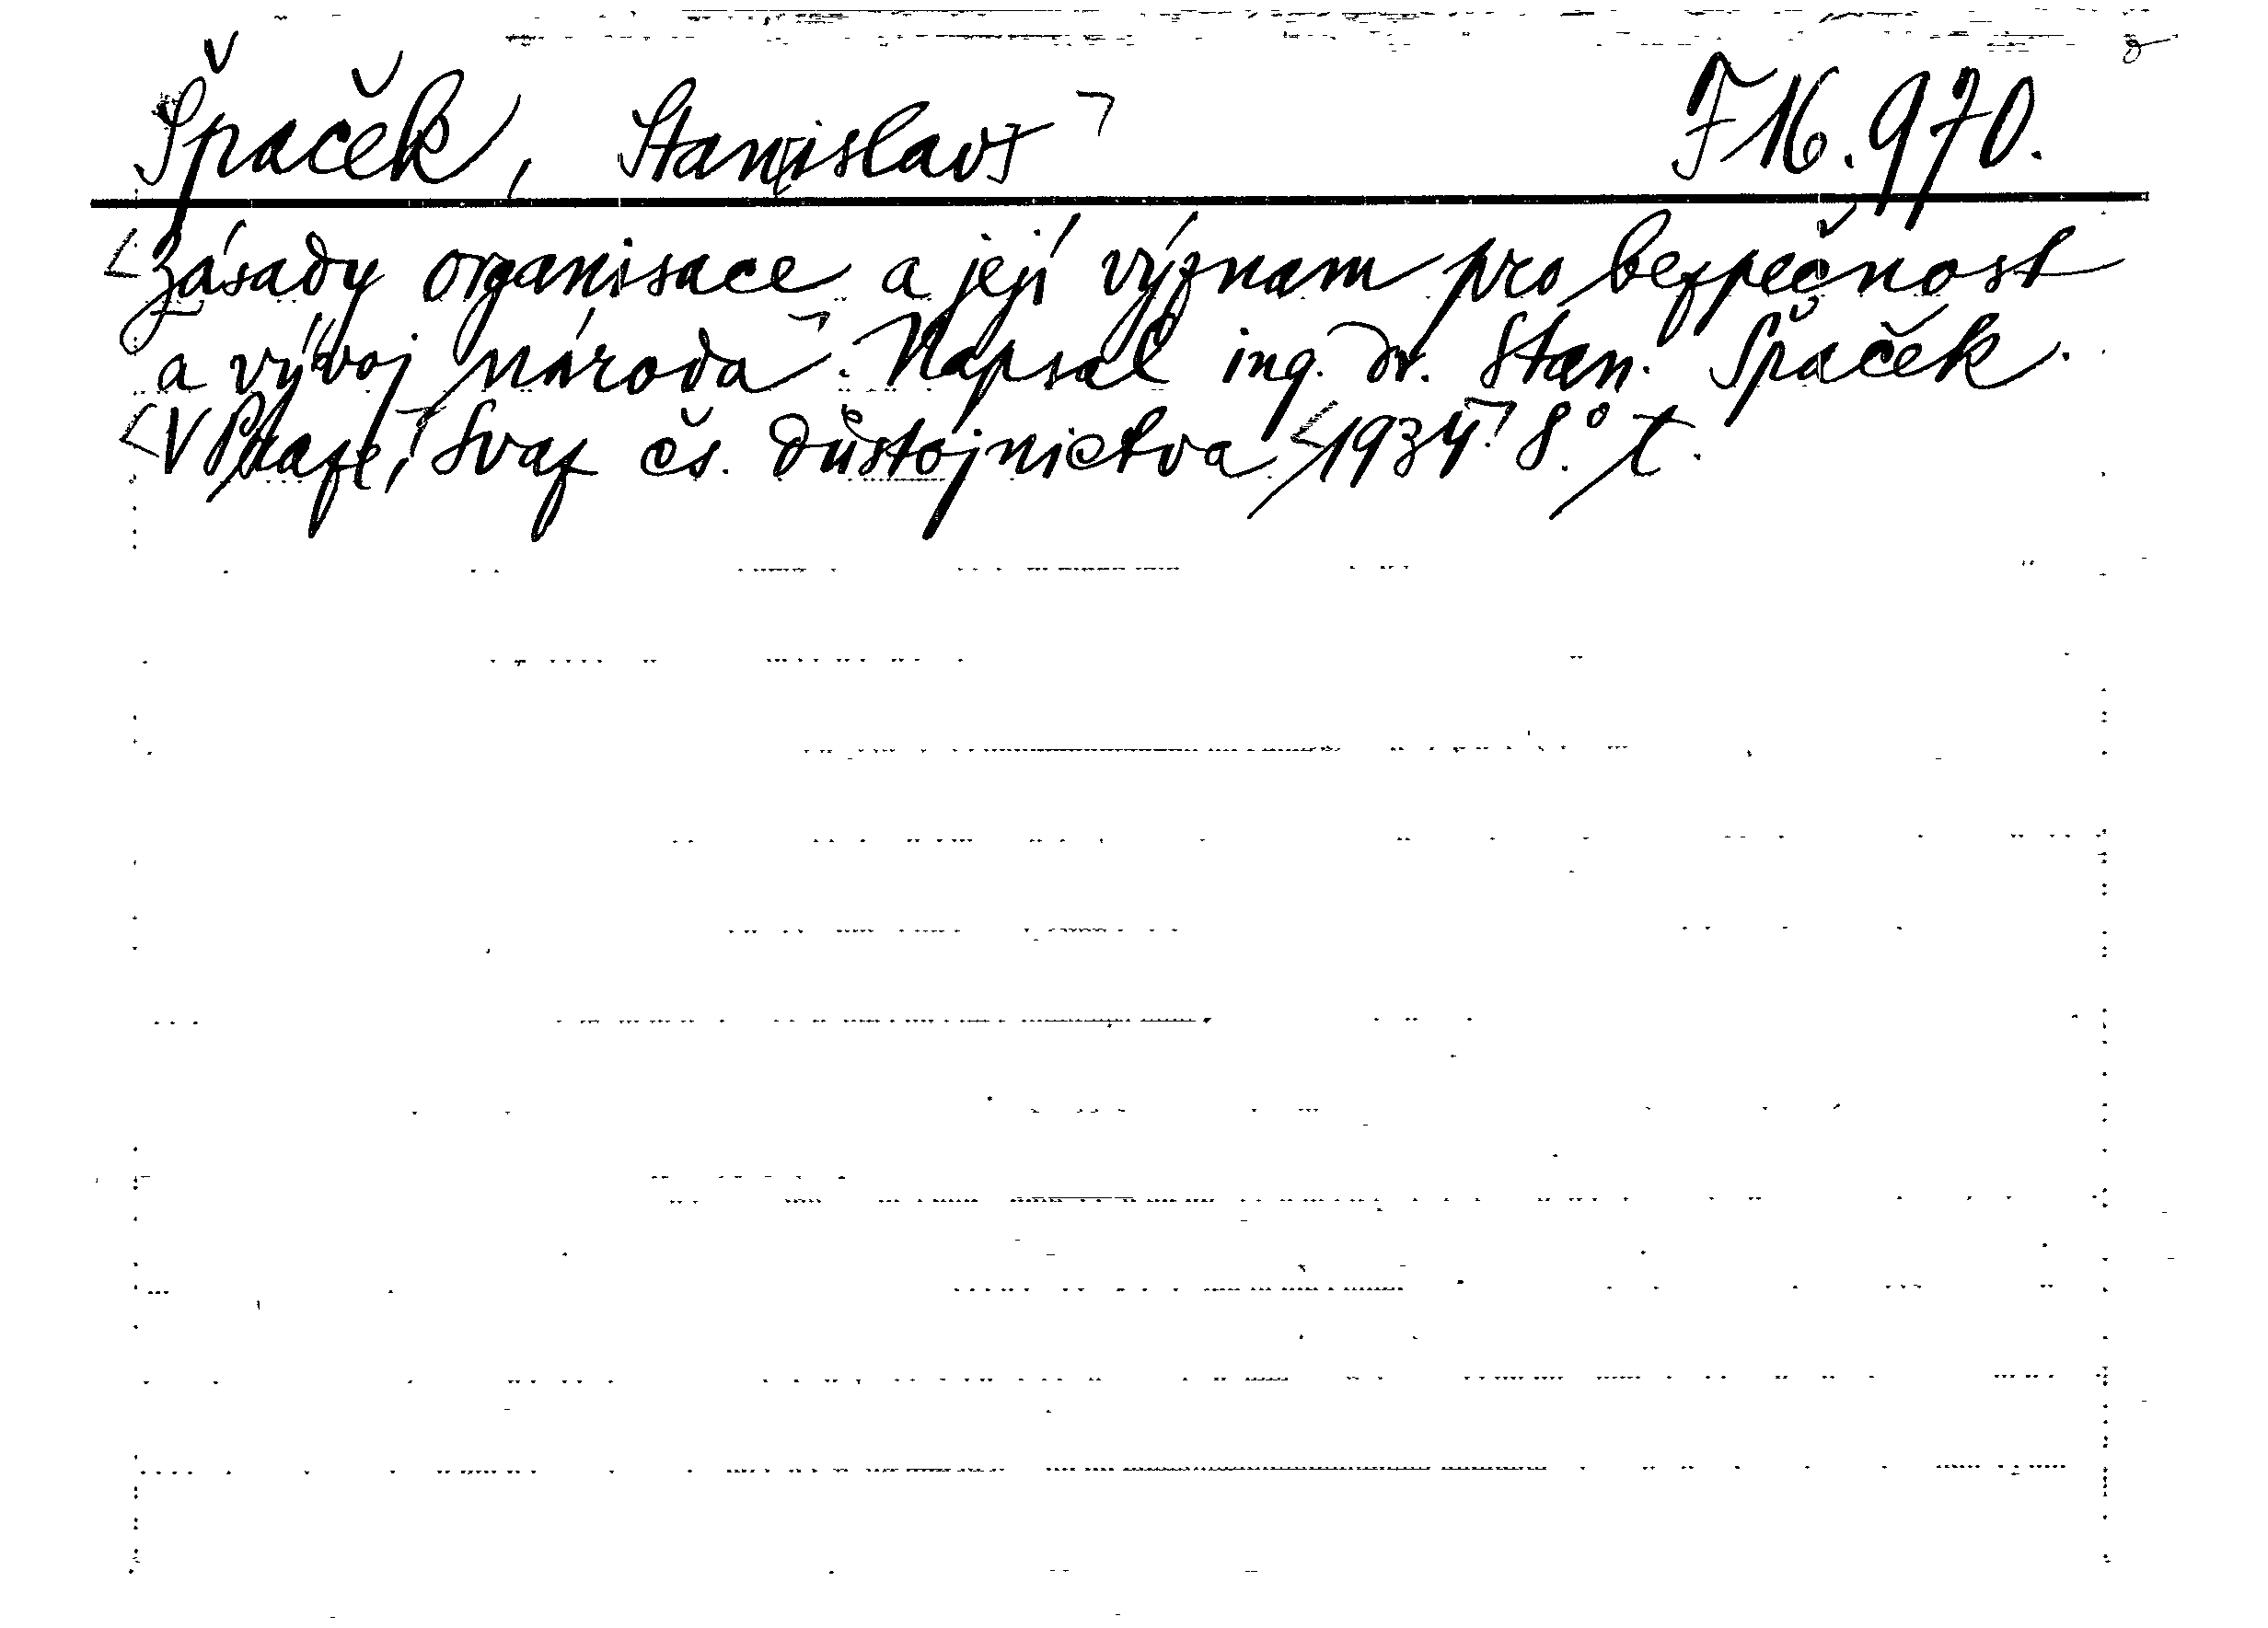 Špaček, Stanislav F 16.970.
Zásady organisace a její význam pro bezpečnost
a vývoj národa. Napsal ing. dr. Stan. Špaček.
V Praze, Svaz čs. důstojnictva 1934. 8°. t.